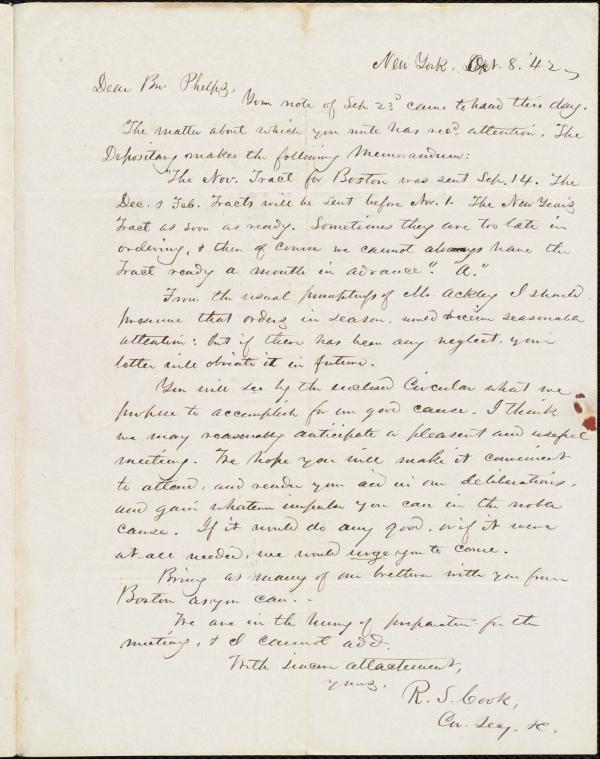 New York, Oct. 8. '42
Dear Br. Phelps,
Your note of Sep 23d came to hand this day.
The matter about which you write has recd. attention. The
Depositary makes the following Memorandum:
"The Nov. Tract for Boston was sent Sep. 14. The
Dec. & Feb. Tracts will be sent before Nov. 1. The New Year's
Tract as soon as ready. Sometimes they are too late in
ordering, & then of course we cannot always have the
Tract ready a month in advance". "A."
From the usual promptness of Mr. Ackley I should
presume that orders in season, would receive seasonable
attention: but if there has been any neglect, your
letter will obviate it in future.
You will see by the enclosed Circular what we
propose to accomplish for our good cause. I think
we may reasonably anticipate a pleasant and useful
meeting. We hope you will make it convenient
to attend, and render your aid in our deliberations,
and gain whatever impulse you can in the noble
cause. If it would do any good, or if it were
at all needed, we would urge you to come.
Bring as many of our brethren with you from
Boston as you can.
We are in the hurry of preparation for the
meeting, & I cannot add.
With sincere attachment,
yours,
R. S. Cook,
Cor. Secy. &c.